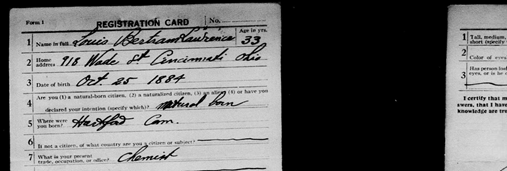 Form 1 REGISTRATION CARD No.
1 Name in full Louis Bertram Lawrence Age in yrs. 33
2 Home address 918 Wade St Cincinnati Ohio
3 Date of birth Oct 25 1884
4 Are you (1) a natural-born citizen, (2) a naturalized citizen, (3) an alien, (4) or have you
declared your intention (specify which)? natural born
5 Where were you born? Hartford Conn.
6 If not a citizen, of what country are you a citizen or subject?
7 What is your present trade, occupation, or office? Chemist
1 Tall, medium,
short (specify
2 Color of eyes
3 Has person lost
eyes, or is he
I certify that m
swers, that I have
knowledge are tru